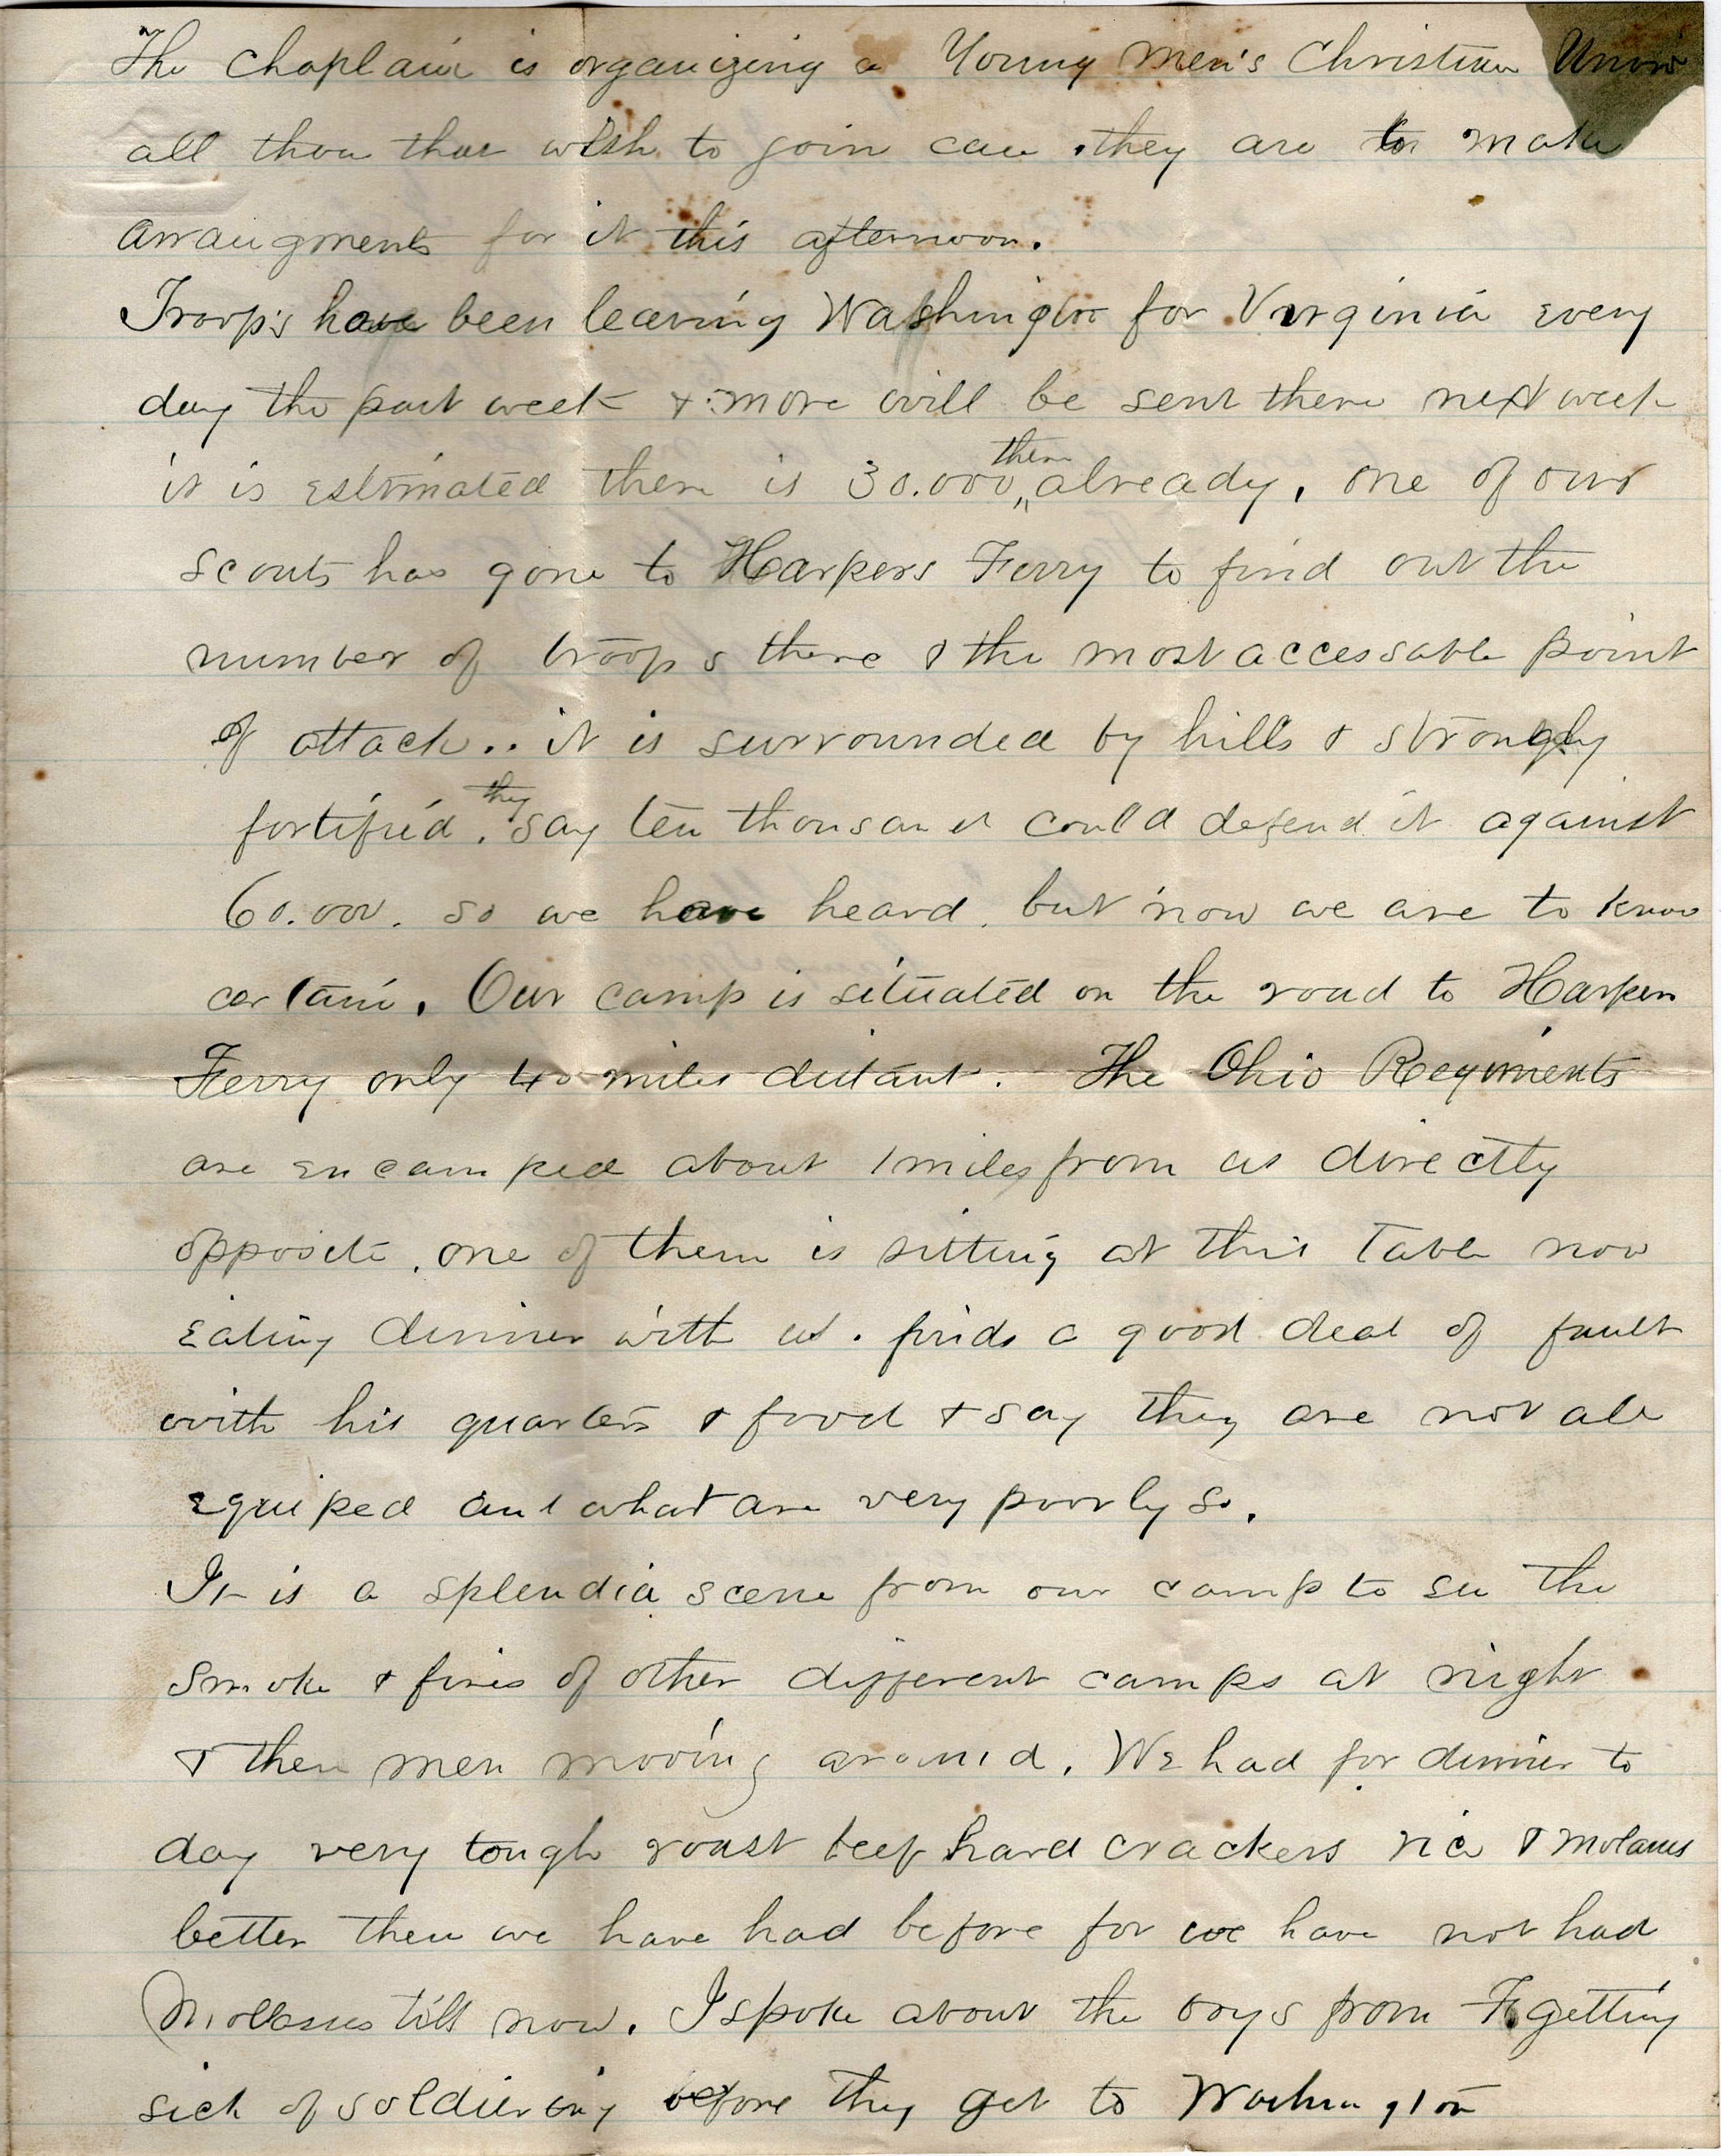 The Chaplain is organizing a Young Men's Christian Union
all those that wish to join can . they are to make
arraugments for it this afternoon.
Troop's have been leaving Washington for Virginia every
day the past week & more will be sent there next week
it is estimated there is 30.000 there already, one of our
scouts has gone to Harpers Ferry to find out the
number of troops there & the most accessable point
of attack.. it is surrounded by hills & strongly
fortified. they say ten thousand could defend it against
60.000. so we have heard. but now we are to know
certain. Our camp is situated on the road to Harpers
Ferry only 40 miles distant. The Ohio Regiments
are encamped about 1 miles from us directly
opposite, one of them is sitting at this Table now
Eating dinner with us. finds a good deal of fault
with his quarters & food & say they are not all
equiped and what are very poorly so.
It is a splendid scene from our camp to see the
smoke & fires of other different camps at night
& then men moving around. We had for dinner to
day very tough roast beef hard crackers rice & molasses
better then we have had before for we have not had
Mollasses till now. I spoke about the boys from F. getting
sick of soldiering before they get to Washington